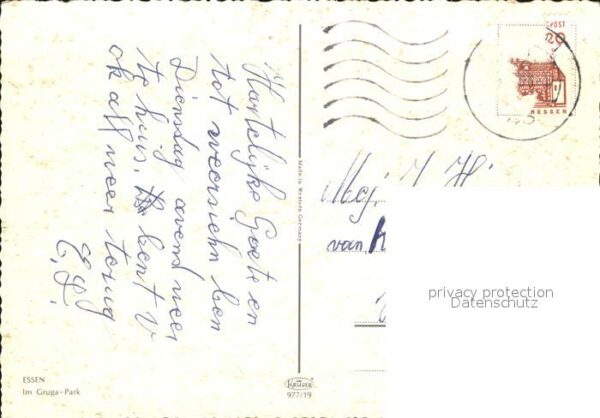 Hartelijke Groeten en
tot weerziehn ben
Dienstag avond weer
tehuis. bent V
ok all weer terug
E.S.
Made in Western Germany
ESSEN
Im Gruga-Park
KRÜGER
977/19
POST
20
HESSEN
Mej. J. H
van
privacy protection
Datenschutz